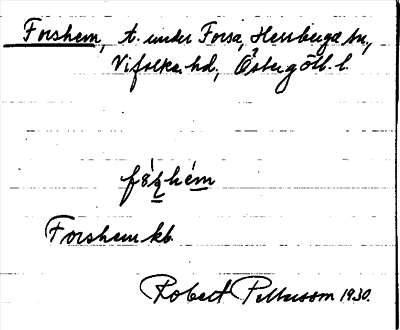 Forshem, t. under Forsa, Herrberga sn,
Vifolka hd, Östergötl. l.
fö̀ʂhém
Forshem kb
Robert Pettersson 1930.